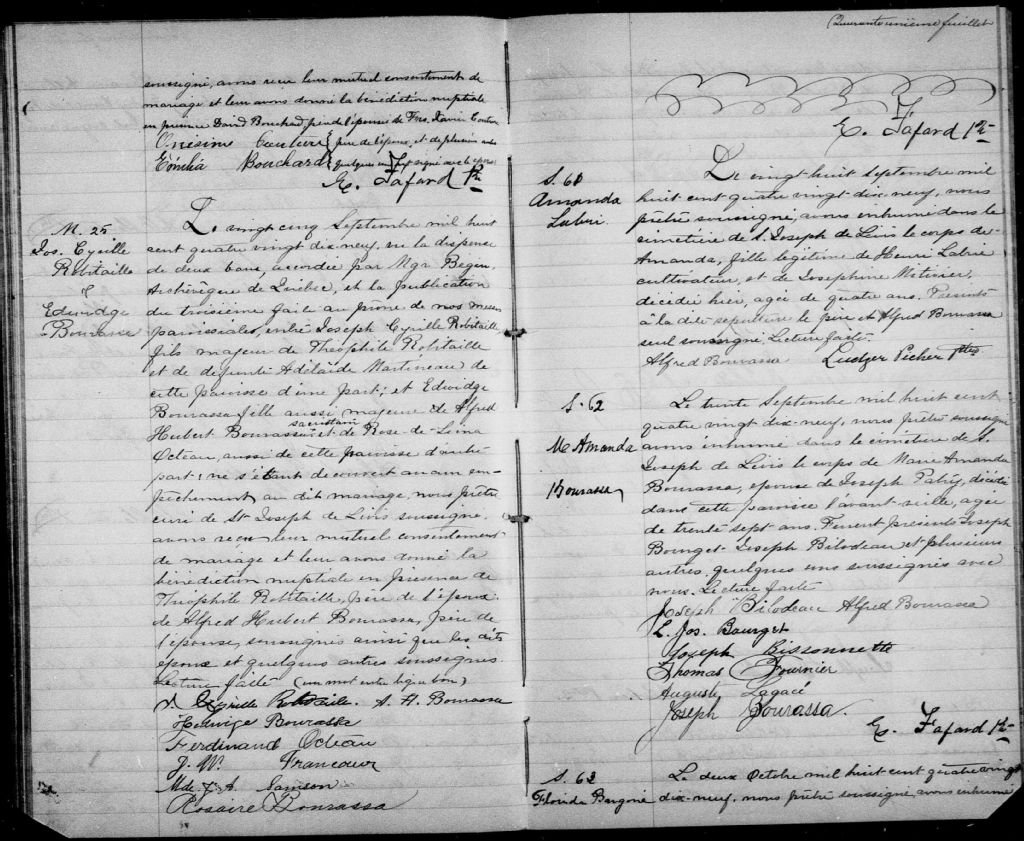 soussigné, avons reçu leur mutuel consentement de
mariage et leur avons donné la bénédiction nuptiale
en présence David Bouchard père de l'épouse de Frs. Xavier Couture
Onésime Couture père de l'époux, et de plusieurs autres
Eémilia Bouchard quelques uns signé avec les époux
E. Fafard Ptr
M. 25
Jos. Cyrille
Robitaille
&
Edwidge
Bourassa
Le vingt cinq Septembre mil huit
cent quatre vingt dix-neuf, vu la dispense
de deux bans, accordée par Mgr Begin,
Archevêque de Québec, et la publication
du troisième faite au prône de nos messes
paroissiales, entre Joseph Cyrille Robitaille
fils majeur de Théophile Robitaille
et de défunte Adélaïde Martineau de
cette paroisse d'une part; et Edwidge
Bourassa fille aussi majeure de Alfred
sacristain
Hubert Bourassa et de Rose-de-Lima
Octeau, aussi de cette paroisse d'autre
part: ne s'étant découvert aucun em-
pêchement au dit mariage, nous prêtre
curé de St Joseph de Lévis soussigné,
avons reçu leur mutuel consentement
de mariage et leur avons donné la
bénédiction nuptiale en présence de
Théophile Robitaille, père de l'époux
de Alfred Hubert Bourassa, père de
l'épouse, soussignés ainsi que les dits
époux et quelques autres soussignés
Lecture faite (un mot entre ligne bon)
J. Cyrille Robitaille. A. H. Bourassa
Hedwige Bourassa
Ferdinand Octeau
J. W. Francoeur
Mde J. A. Samson
Rosaire Bourassa
Quarante unième feuillet
E. Fafard Ptr
S. 61
Amanda
Labrie
Le vingt-huit Septembre mil
huit cent quatre vingt-dix-neuf, nous
prêtre soussigné, avons inhumé dans le
cimetière de S. Joseph de Lévis le corps de
Amanda, fille légitime de Henri Labrie
cultivateur, et de Josephine Métivier,
décédée hier, agée de quatre ans. Présents
à la dite sépulture le père et Alfred Bourassa
seul soussigné. Lecture faite.
Alfred Bourassa Ludger Picher Ptre
S. 62
M Amanda
Bourassa
Le trente Septembre mil huit cent
quatre vingt dix-neuf, nous prêtre soussigné
avons inhumé dans le cimetière de S.
Joseph de Lévis le corps de Marie Amanda
Bourassa, épouse de Joseph Patry, décédée
dans cette paroisse l'avant-veille, agée
de trente sept ans. Furent présents Joseph
Bourget Joseph Bilodeau et plusieurs
autres, quelques uns soussignés avec
nous. Lecture faite
Joseph Bilodeau Alfred Bourassa
L. Jos. Bourget
Joseph Bissonnette
Thomas Fournier
Auguste Lagacé
Joseph Bourassa.
E. Fafard Ptr
S. 63
Florida
Le deux Octobre mil huit cent quatre vingt
dix-neuf, nous prêtre soussigné, avons inhumé